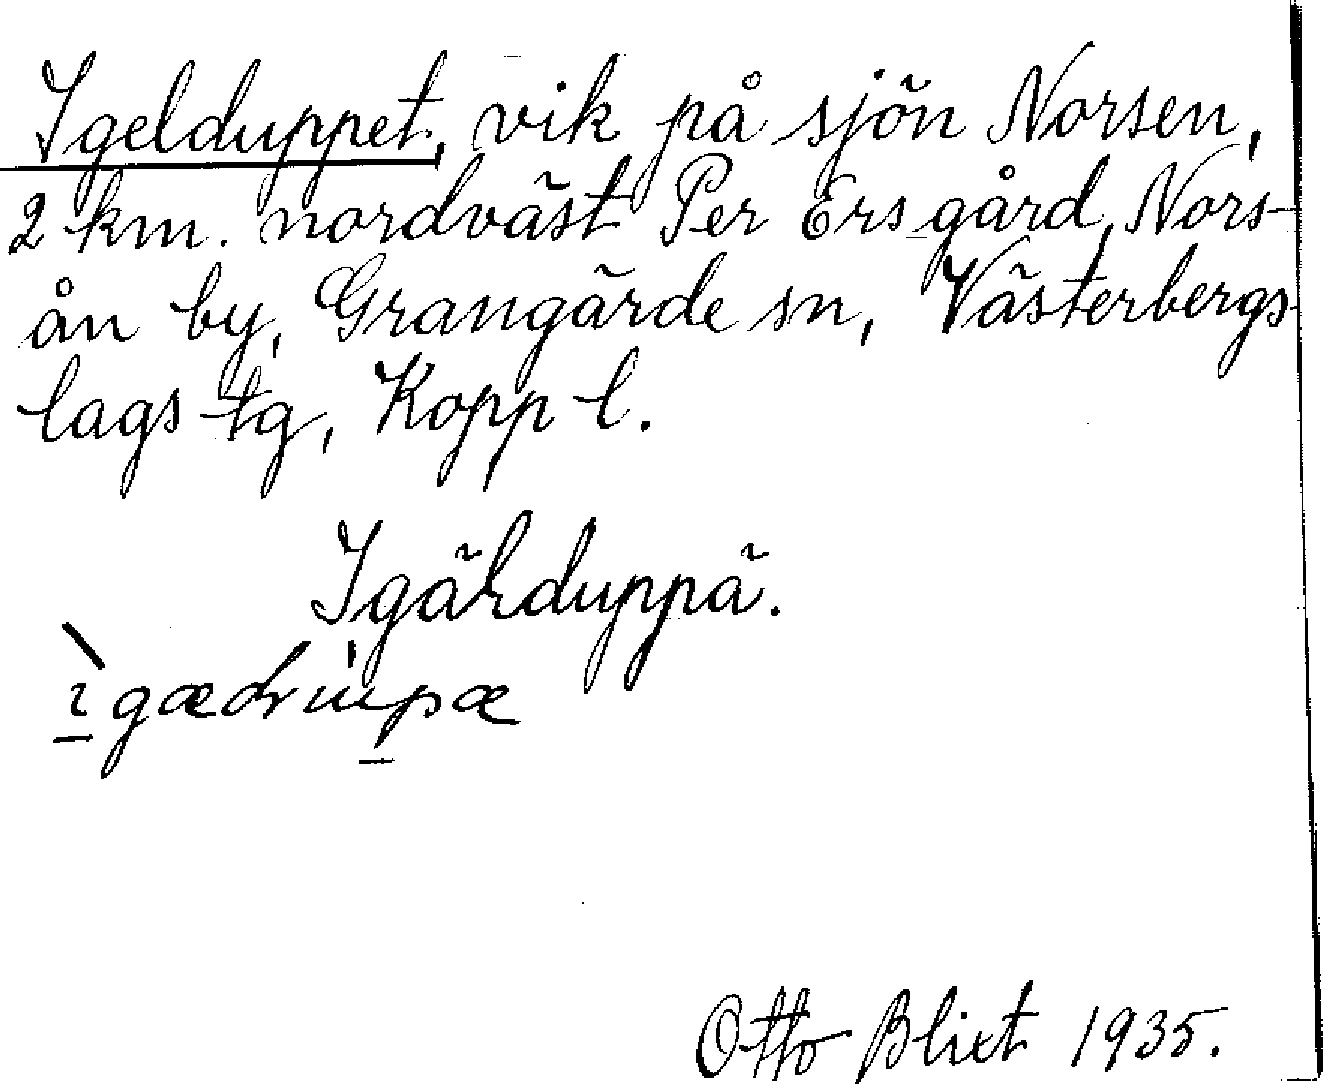 Igelduppet, vik på sjön Norsen,
2 km. nordväst Per Ersgård, Nors-
ån by, Grangärde sn, Västerbergs-
lags tg, Kopp l.
Igälduppä.
Otto Blixt 1935.